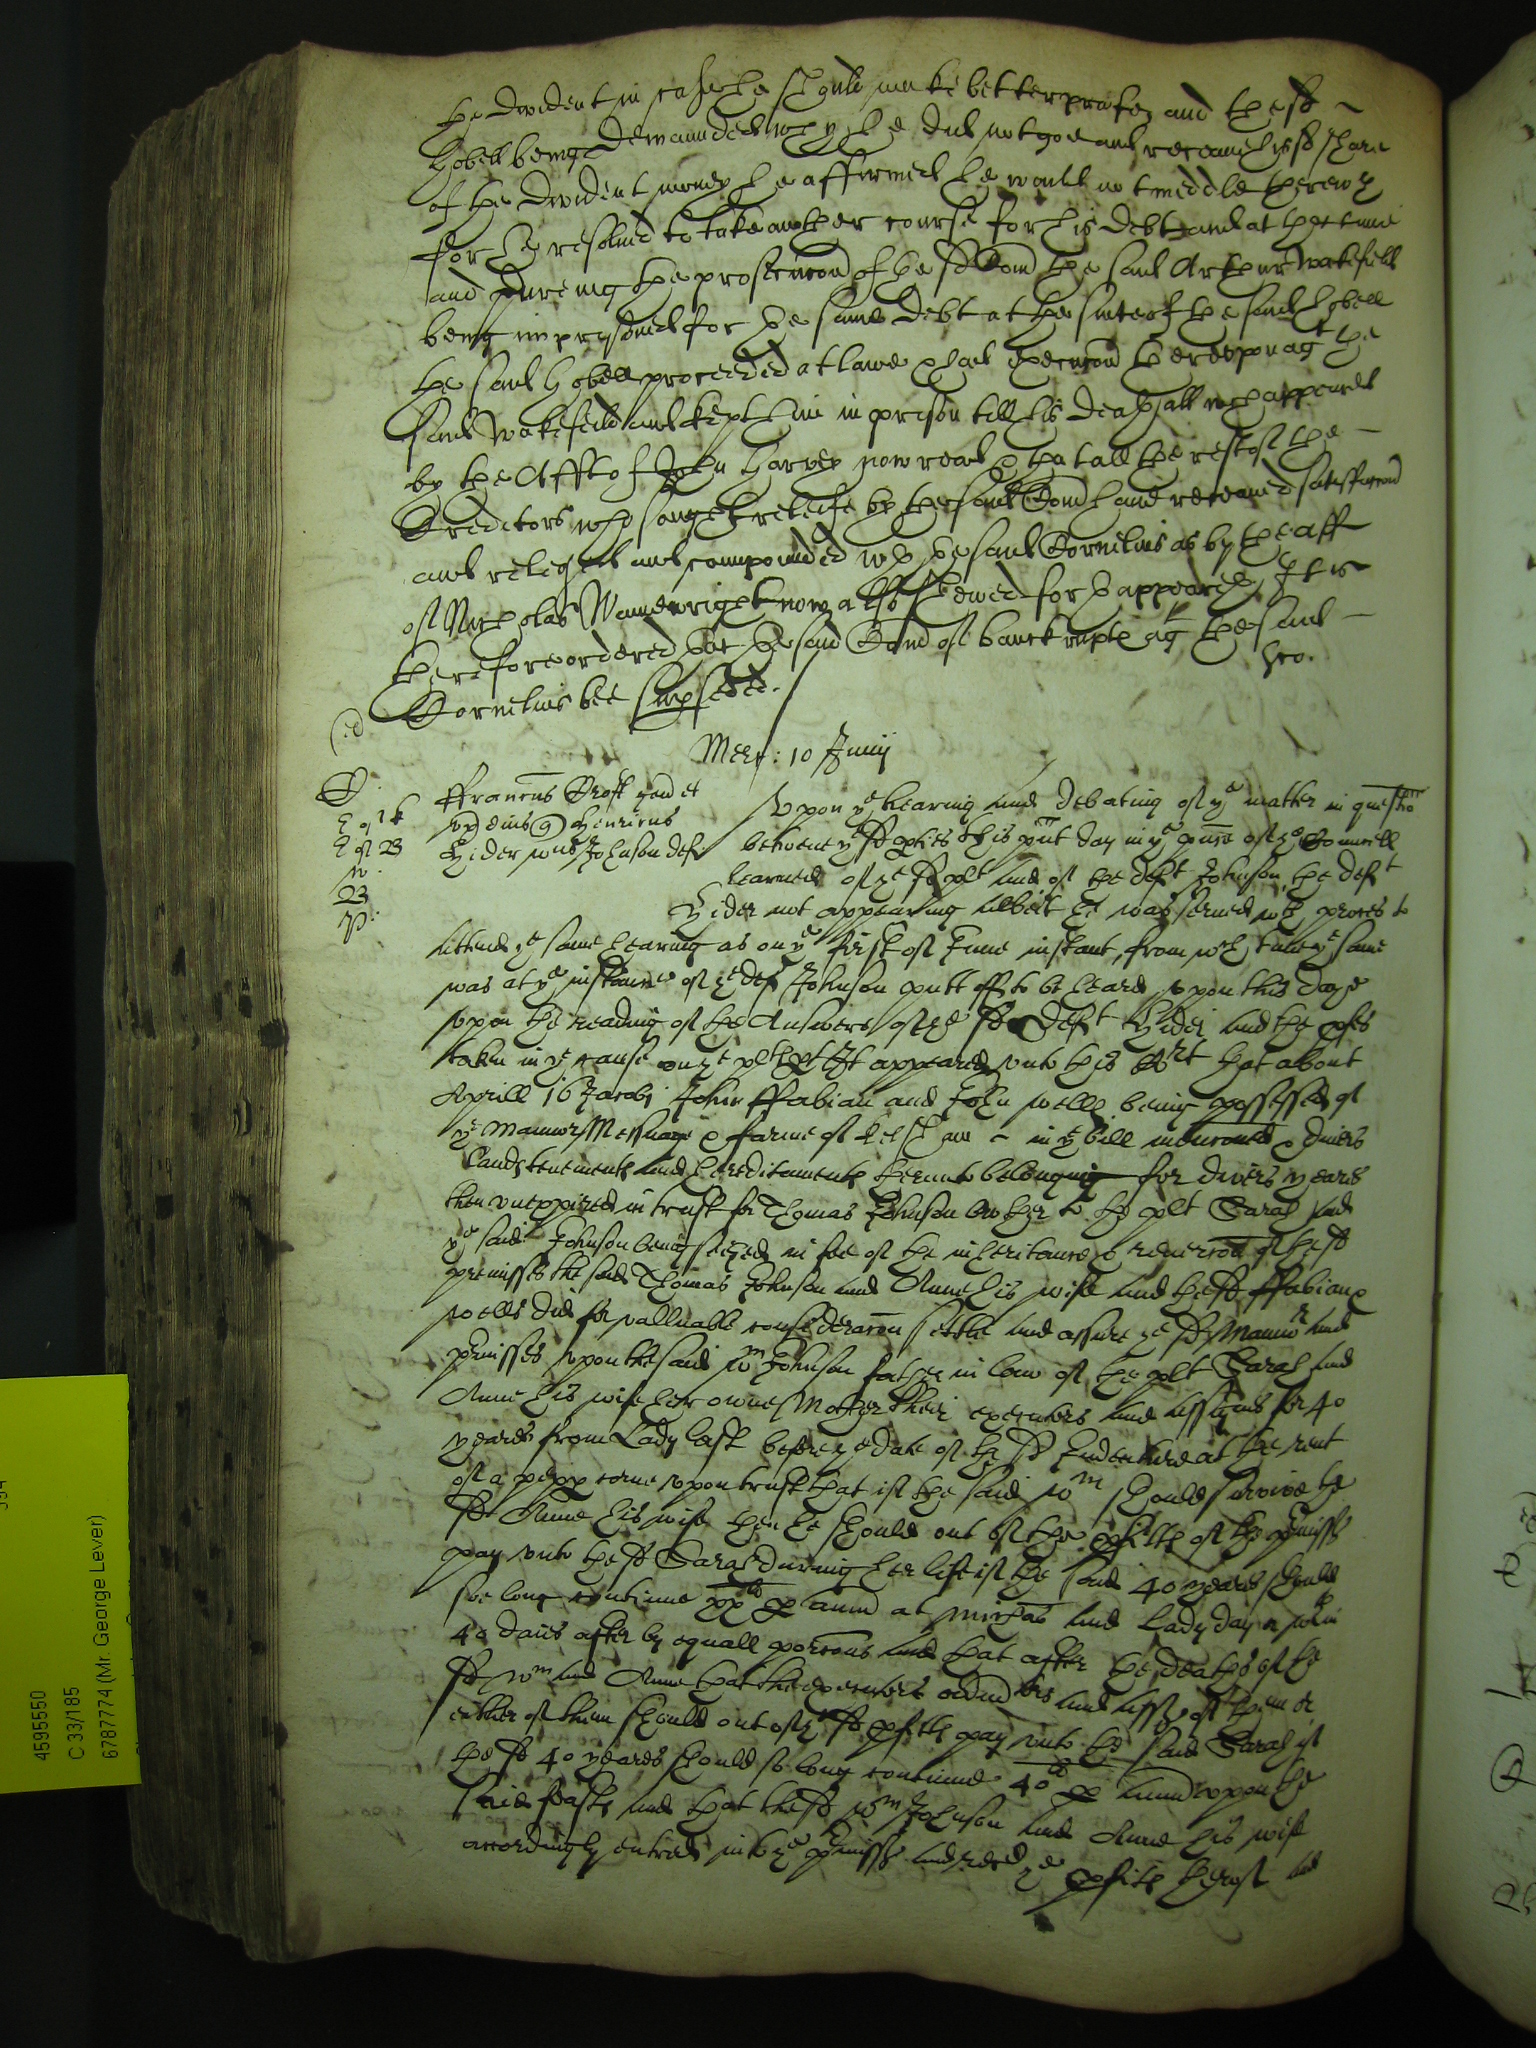 the divident in case he should make better proofe, and the sd
Hobell being demaunded why he did not goe and receave his sd share
of the divident money he affirmed he would not meddle therewth
for he resolved to take another course for his debt and at that time
and dureing the prosecucon of the sd Com the said Arthur Wakefeild
being imprisoned for the same debt at the suite of the said Hobell
the said Hobell proceeded at lawe & had execucon thereupon agt the
said Wakefeild and kept him in prison till his death all wch appeared
by the Afft of John Harvey now read & that all the rest of the
Creditors who sought releife by the said Com have receaved satisfaccon
and released and compounded wth the said Cornelius as by the aff
of Nicholas Wannewright now also shewed forth appeareth, It is
therefore ordered that the said Com of banckrupte agt the said
Cornelius bee supseded.
Merc: 10 Junij
ffranciscus Croft gen et
ux eius Henricus
Hider Wms Johnson def
Upon ye hearing and debating of ye matter in question
betweene ye sd pties this pnt day in ye pnce of ye Councell
learned of ye sd plt and of the deft Johnson, the deft
Hider not appearing albeit he was served wth proces to
attend ye same hearing as on ye first of June instant, from wch time ye same
was at ye instance of ye def Johnson putt off to be heard upon this daye
Upon the reading of the Answere of ye sd Deft Hider and the pfes
taken in ye cause on ye plts pt It appeared unto this Cort that about
Aprill 16 Jacobi John ffabian and John Wells being possessed of
ye Mannor Messuage & farme of in ye bill menconed & divers
lands tenements and hereditaments therunto belonging for divers yeares
then unexpired in trust for Thomas Johnson brother to the plt Sarah and
ye said Johnson being seized in fee of the inheritance & revercon of the sd
premisses the said Thomas Johnson and Anne his wife and the sd ffabian &
Wells did for valluable consideracon settle and assure ye sd Mannor and
pmisses upon the said Wm Johnson father in law of the plt Sarah and
Anne his wife her owne Mother their executors and assignes for 40
yeares from Lady last before ye date of the sd Indenture at the rent
of a pepp corne upon trust that if the said Wm should survive the
sd Anne his wife then he should out of the pfitts of the pmisses
pay unto the sd Sarah during her life if the said 40 yeares should
soe long continue xxli p annu at Michas and Lady day or wthin
40 daies after by equall porcons and that after the deaths of the
sd Wm and Anne that the executors admrs and ass of them or
either of them should out of ye sd pfitts pay unto the said Sarah if
the sd 40 yeares should so long continue 40li p annu upon the
said feasts and that the sd Wm Johnson and Anne his wife
accordingly entred into ye pmisses and recd ye pfitts therof and
4595550
C 33/185
6787774 (Mr. George Lever)